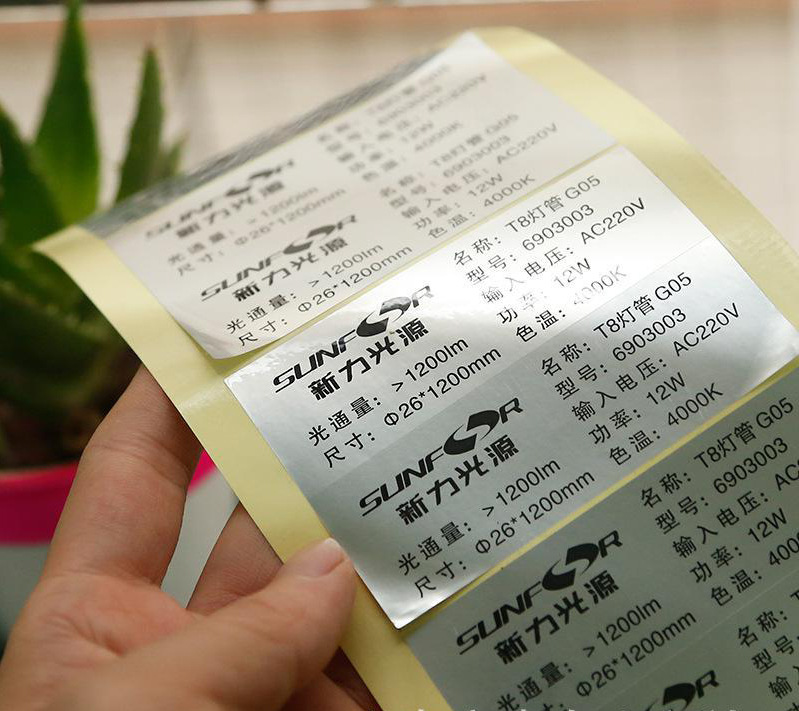 SUNFOR
新力光源
光通量：>1200lm
尺寸：Φ26*1200mm
名称：
型号：6903003
输入电压：AC220V
功率：12W
色温：4000K
SUNFOR
新力光源
光通量：>1200lm
尺寸：Φ26*1200mm
名称：T8灯管 G05
型号：6903003
输入电压：AC220V
功率：12W
色温：4000K
SUNFOR
新力光源
光通量：>1200lm
尺寸：Φ26*1200mm
名称：T8灯管 G05
型号：6903003
输入电压：AC220V
功率：12W
色温：4000K
SUNFOR
新力光源
光通量：>1200lm
尺寸：Φ26*1200mm
名称：T8灯管 G05
型号：6903003
输入电压：AC220V
功率：12W
色温：4000K
SUNFOR
新力光源
光通量：>1200lm
尺寸：Φ26*1200mm
名称：T8灯管 G05
型号：6903003
输入电压：AC
功率：12W
色温：400
SUNFOR
名称：
型号：
输入